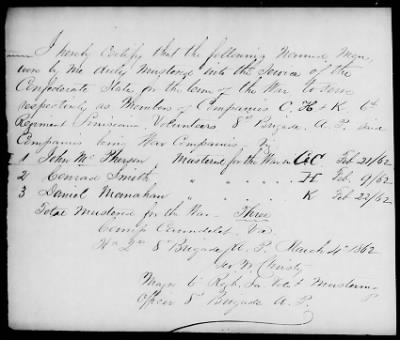 I hereby Certify that the following Named Men,
were by me duly Mustered into the Service of the
Confederate States for the term of the War to serve
respectively as Members of Companies C, H & K 6th
Regiment Louisiana Volunteers 8th Brigade, A. P. said
Companies being War Companies
1 John McPherson Mustered for the War in Co C Feb 21/62
2 Conrad Smith " " " " " H Feb 9/62
3 Daniel Monahan " " " " " K Feb 22/62
Total Mustered for the War Three
Camp Carondelet, Va
Hd Qrs 8th Brigade A. P. March 4th 1862
Geo. W. Christy
Major 6th Regt La Vols Mustering
Officer 8th Brigade A. P.